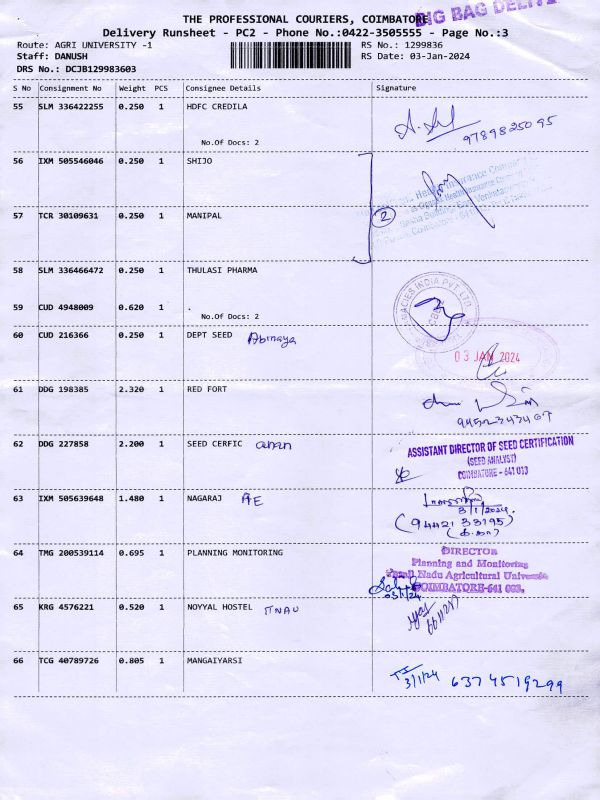 THE PROFESSIONAL COURIERS, COIMBATORE
BIG BAG DELIVE
Delivery Runsheet - PC2 - Phone No.:0422-3505555 - Page No.:3
Route: AGRI UNIVERSITY -1 RS No.: 1299836
Staff: DANUSH RS Date: 03-Jan-2024
DRS No.: DCJB129983603
S No Consignment No Weight PCS Consignee Details Signature
55 SLM 336422255 0.250 1 HDFC CREDILA
9789825095
No.Of Docs: 2
56 IXM 505546046 0.250 1 SHIJO
57 TCR 30109631 0.250 1 MANIPAL
2
58 SLM 336466472 0.250 1 THULASI PHARMA
59 CUD 4948009 0.620 1 .
No.Of Docs: 2
60 CUD 216366 0.250 1 DEPT SEED Abinaya
03 JAN 2024
61 DDG 198385 2.320 1 RED FORT
62 DDG 227858 2.200 1 SEED CERFIC
ASSISTANT DIRECTOR OF SEED CERTIFICATION
(SEED ANALYST)
COIMBATORE - 641 013
63 IXM 505639648 1.480 1 NAGARAJ AE
3/1/2024
(94421 33195)
64 TMG 200539114 0.695 1 PLANNING MONITORING
DIRECTOR
Planning and Monitoring
Tamil Nadu Agricultural Universit
COIMBATORE-641 003.
03/1/24
65 KRG 4576221 0.520 1 NOYYAL HOSTEL TNAU
66 TCG 40789726 0.805 1 MANGAIYARSI
3/1/24 6374519299